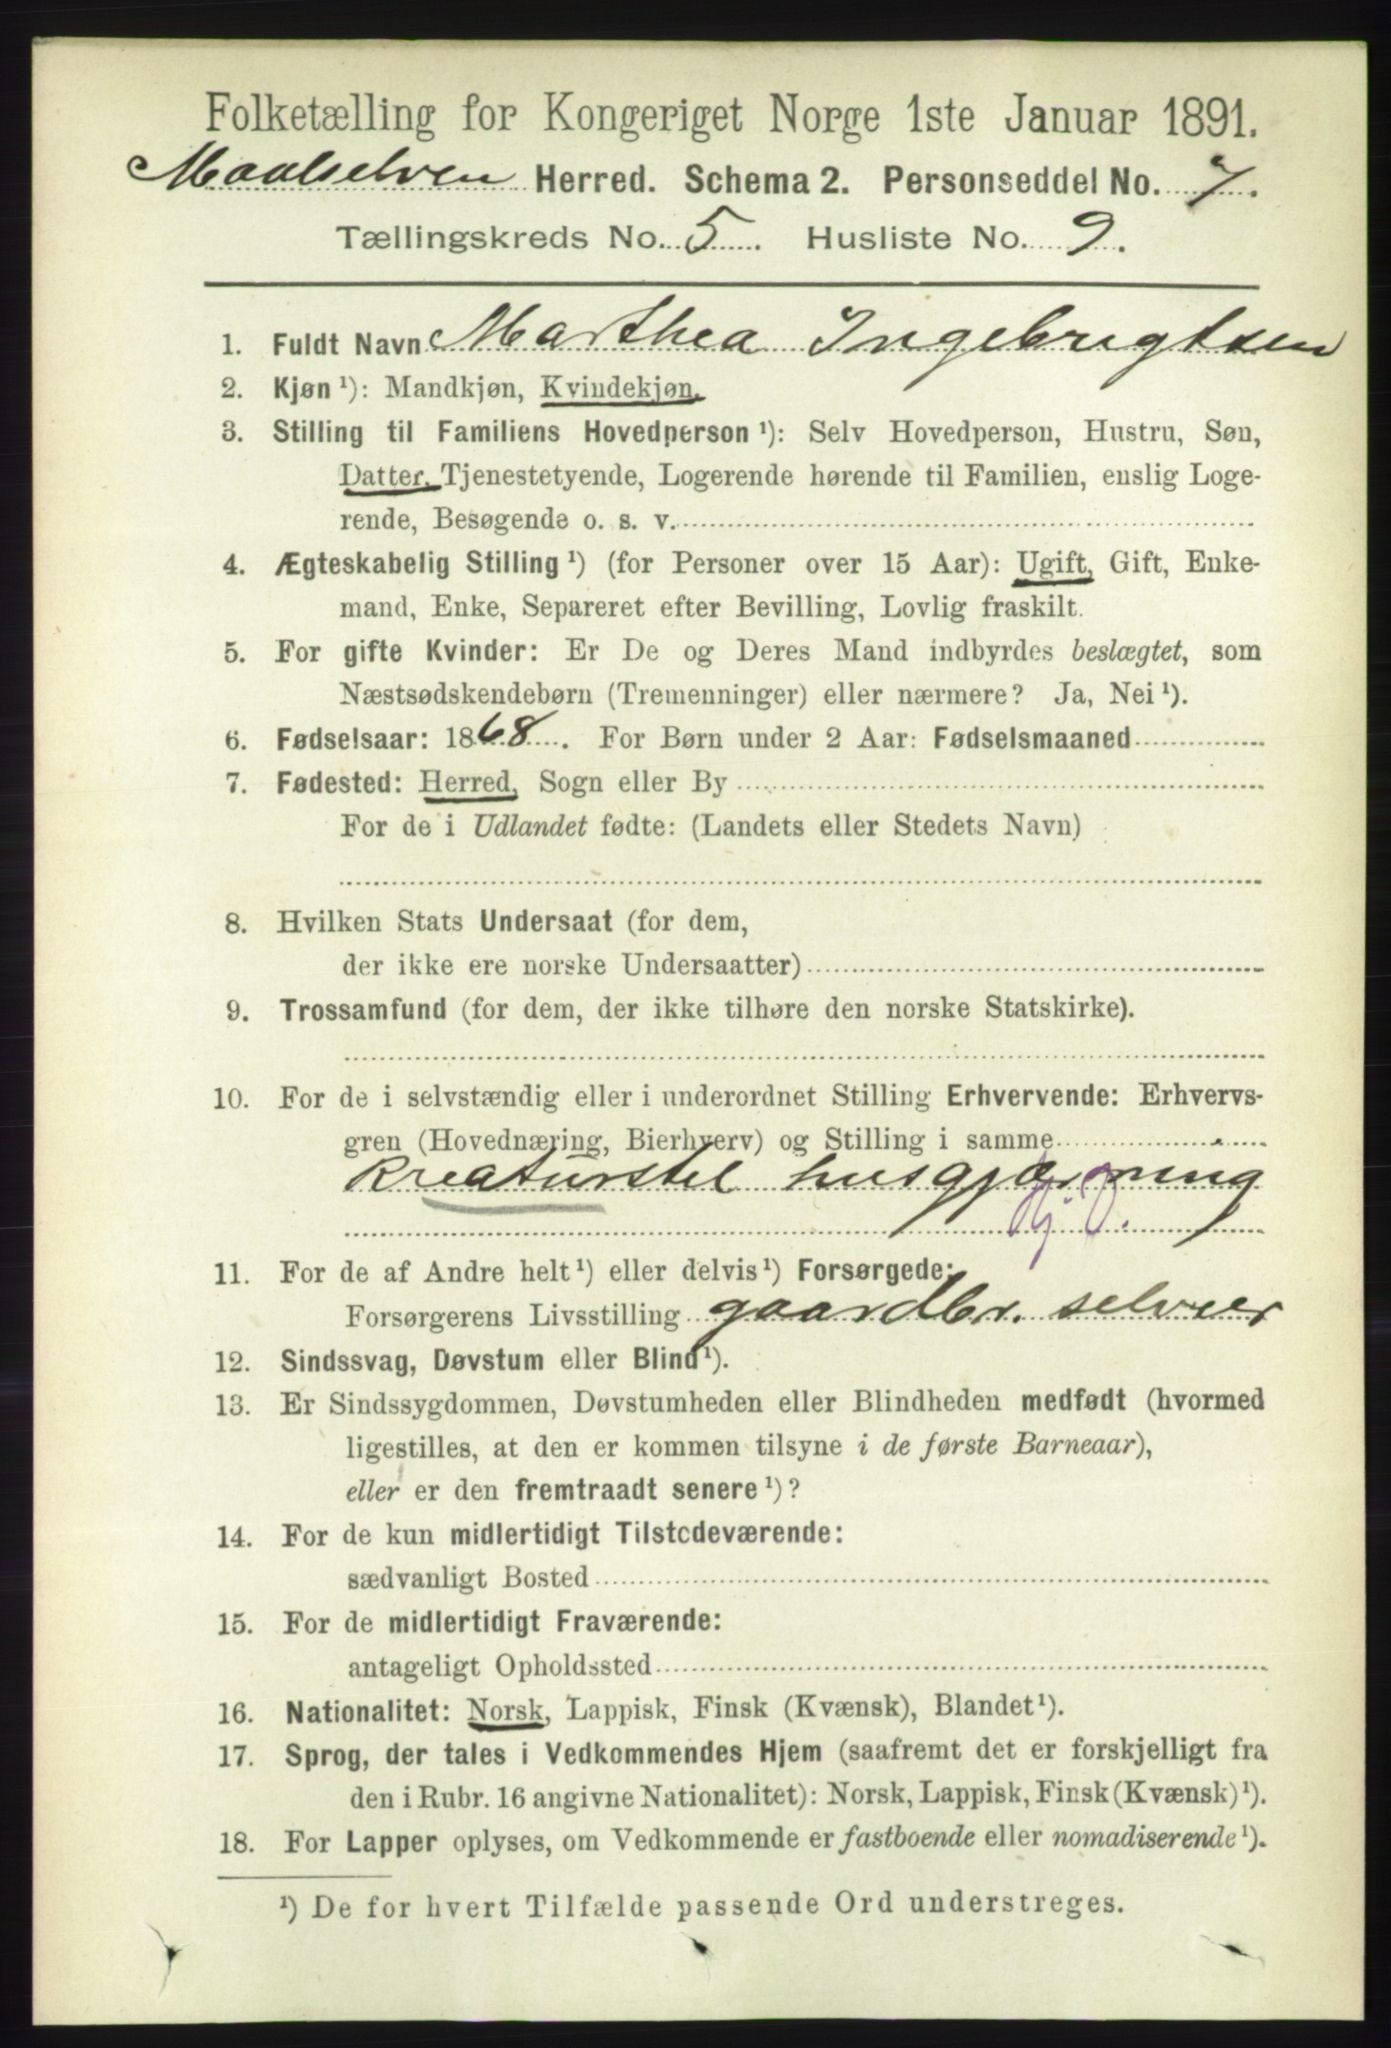 Folketælling for Kongeriget Norge 1ste Januar 1891.
Maalselven Herred. Schema 2. Personseddel No. 7.
Tællingskreds No. 5. Husliste No. 9.
1. Fuldt Navn Marthea Ingebrigtsen
2. Kjøn ¹): Mandkjøn, Kvindekjøn.
3. Stilling til Familiens Hovedperson ¹): Selv Hovedperson, Hustru, Søn,
Datter, Tjenestetyende, Logerende hørende til Familien, enslig Loge-
rende, Besøgende o. s. v.
4. Ægteskabelig Stilling ¹) (for Personer over 15 Aar): Ugift, Gift, Enke-
mand, Enke, Separeret efter Bevilling, Lovlig fraskilt.
5. For gifte Kvinder: Er De og Deres Mand indbyrdes beslægtet, som
Næstsødskendebørn (Tremenninger) eller nærmere? Ja, Nei ¹).
6. Fødselsaar: 1868. For Børn under 2 Aar: Fødselsmaaned
7. Fødested: Herred, Sogn eller By
For de i Udlandet fødte: (Landets eller Stedets Navn)
8. Hvilken Stats Undersaat (for dem,
der ikke ere norske Undersaatter)
9. Trossamfund (for dem, der ikke tilhøre den norske Statskirke).
10. For de i selvstændig eller i underordnet Stilling Erhvervende: Erhvervs-
gren (Hovednæring, Bierhverv) og Stilling i samme
kreaturstel husgjærning
11. For de af Andre helt ¹) eller delvis ¹) Forsørgede:
Forsørgerens Livsstilling gaardbr. selveier
12. Sindssvag, Døvstum eller Blind ¹).
13. Er Sindssygdommen, Døvstumheden eller Blindheden medfødt (hvormed
ligestilles, at den er kommen tilsyne i de første Barneaar),
eller er den fremtraadt senere ¹)?
14. For de kun midlertidigt Tilstedeværende:
sædvanligt Bosted
15. For de midlertidigt Fraværende:
antageligt Opholdssted
16. Nationalitet: Norsk, Lappisk, Finsk (Kvænsk), Blandet ¹).
17. Sprog, der tales i Vedkommendes Hjem (saafremt det er forskjelligt fra
den i Rubr. 16 angivne Nationalitet): Norsk, Lappisk, Finsk (Kvænsk) ¹).
18. For Lapper oplyses, om Vedkommende er fastboende eller nomadiserende ¹).
¹) De for hvert Tilfælde passende Ord understreges.